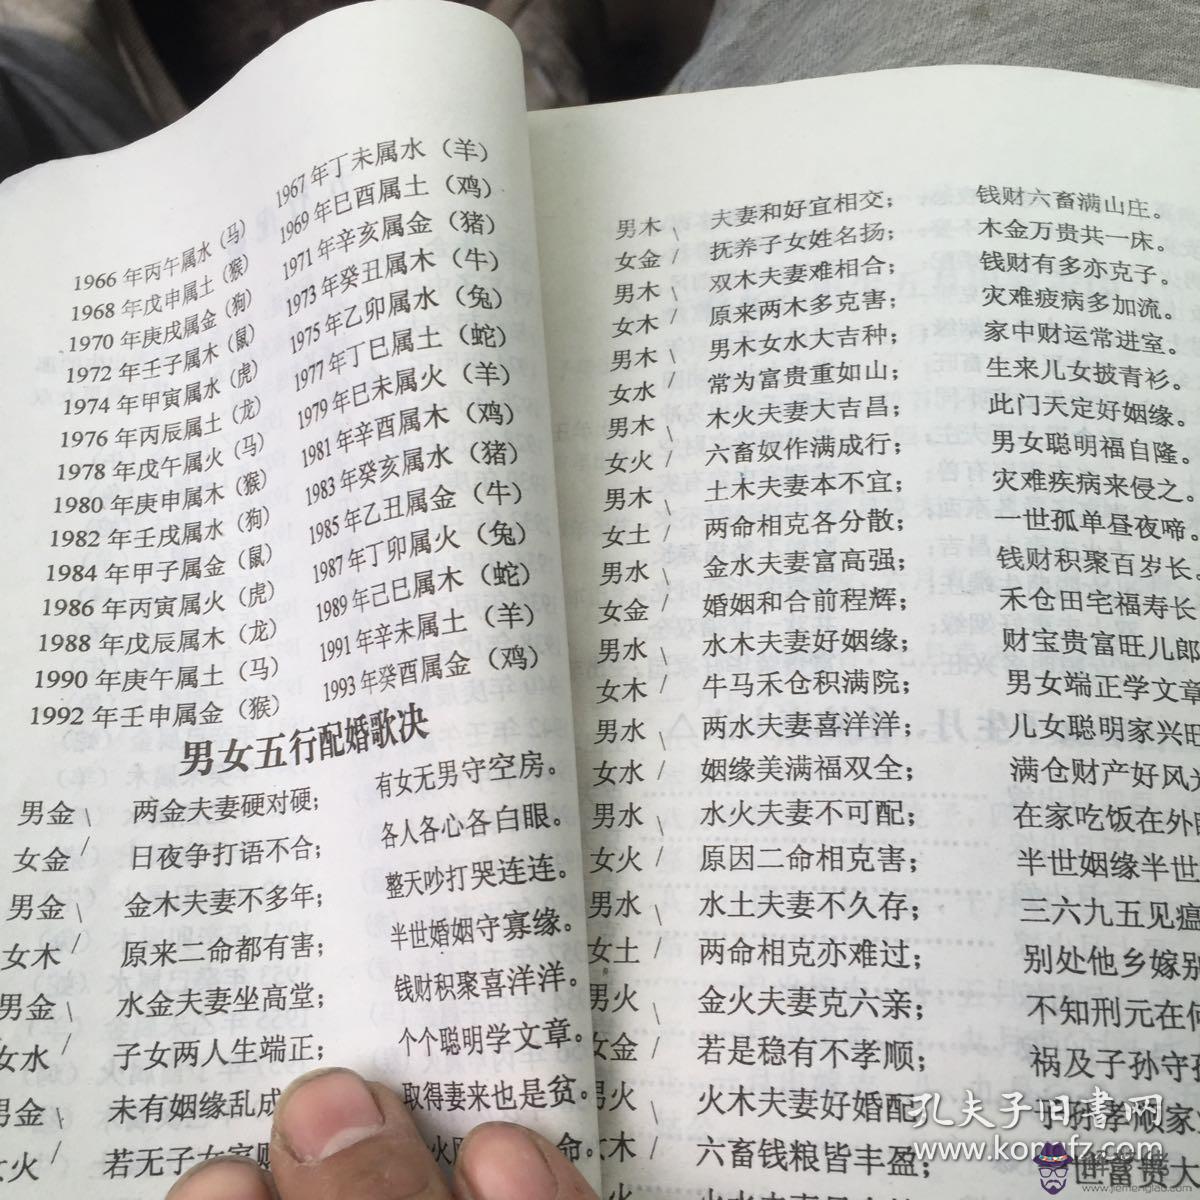 1966年丙午属水（马） 1967年丁未属水（羊）
1968年戊申属土（猴） 1969年巳酉属土（鸡）
1970年庚戌属金（狗） 1971年辛亥属金（猪）
1972年壬子属木（鼠） 1973年癸丑属木（牛）
1974年甲寅属水（虎） 1975年乙卯属水（兔）
1976年丙辰属土（龙） 1977年丁巳属土（蛇）
1978年戊午属火（马） 1979年巳未属火（羊）
1980年庚申属木（猴） 1981年辛酉属木（鸡）
1982年壬戌属水（狗） 1983年癸亥属水（猪）
1984年甲子属金（鼠） 1985年乙丑属金（牛）
1986年丙寅属火（虎） 1987年丁卯属火（兔）
1988年戊辰属木（龙） 1989年己巳属木（蛇）
1990年庚午属土（马） 1991年辛未属土（羊）
1992年壬申属金（猴） 1993年癸酉属金（鸡）
男女五行配婚歌决
男金\ 两金夫妻硬对硬； 有女无男守空房。
女金/ 日夜争打语不合； 各人各心各白眼。
男金\ 金木夫妻不多年； 整天吵打哭连连。
女木/ 原来二命都有害； 半世婚姻守寡缘。
男金\ 水金夫妻坐高堂； 钱财积聚喜洋洋。
女水/ 子女两人生端正； 个个聪明学文章。
男金\ 未有姻缘乱成 取得妻来也是贫。
女火/ 若无子女家 命。
男木\ 夫妻和好宜相交； 钱财六畜满山庄。
女金/ 抚养子女姓名扬； 木金万贵共一床。
男木\ 双木夫妻难相合； 钱财有多亦克子。
女木/ 原来两木多克害； 灾难疲病多加流。
男木\ 男木女水大吉种； 家中财运常进室。
女水/ 常为富贵重如山； 生来儿女披青衫。
男木\ 木火夫妻大吉昌； 此门天定好姻缘。
女火/ 六畜奴作满成行； 男女聪明福自隆。
男木\ 土木夫妻本不宜； 灾难疾病来侵之。
女土/ 两命相克各分散； 一世孤单昼夜啼。
男水\ 金水夫妻富高强； 钱财积聚百岁长。
女金/ 婚姻和合前程辉； 禾仓田宅福寿长
男水\ 水木夫妻好姻缘； 财宝贵富旺儿郎
女木/ 牛马禾仓积满院； 男女端正学文章
男水\ 两水夫妻喜洋洋； 儿女聪明家兴旺
女水/ 姻缘美满福双全； 满仓财产好风光
男水\ 水火夫妻不可配； 在家吃饭在外
女火/ 原因二命相克害； 半世姻缘半世
男水\ 水土夫妻不久存； 三六九五见瘟
女土/ 两命相克亦难过； 别处他乡嫁别
男火\ 金火夫妻克六亲； 不知刑元在何
女金/ 若是稳有不孝顺； 祸及子孙守
男火\ 火木夫妻好婚配 孙孝顺家
女木/ 六畜钱粮皆丰盈； 世富贵大
孔夫子旧书网
www.kongfz.com
解梦佬
www.jiemenglao.com